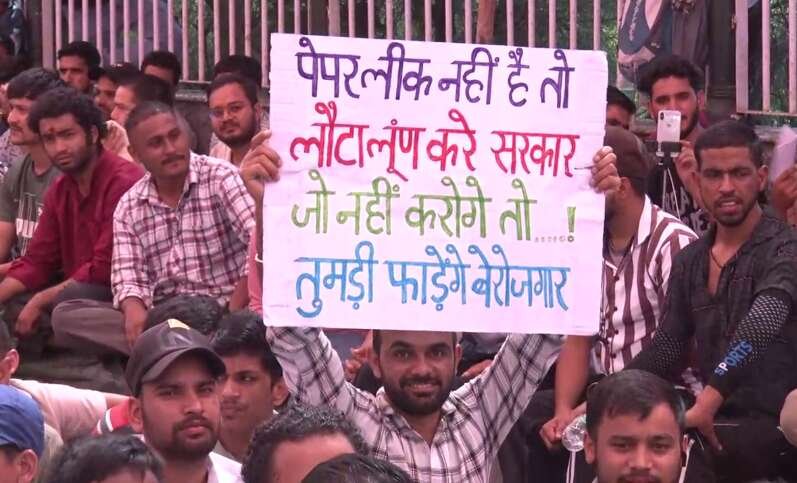 पेपरलीक नहीं है तो
लौटालूंण करे सरकार
जो नहीं करोगे तो....!
तुमड़ी फाड़ेंगे बेरोजगार
SPORTS